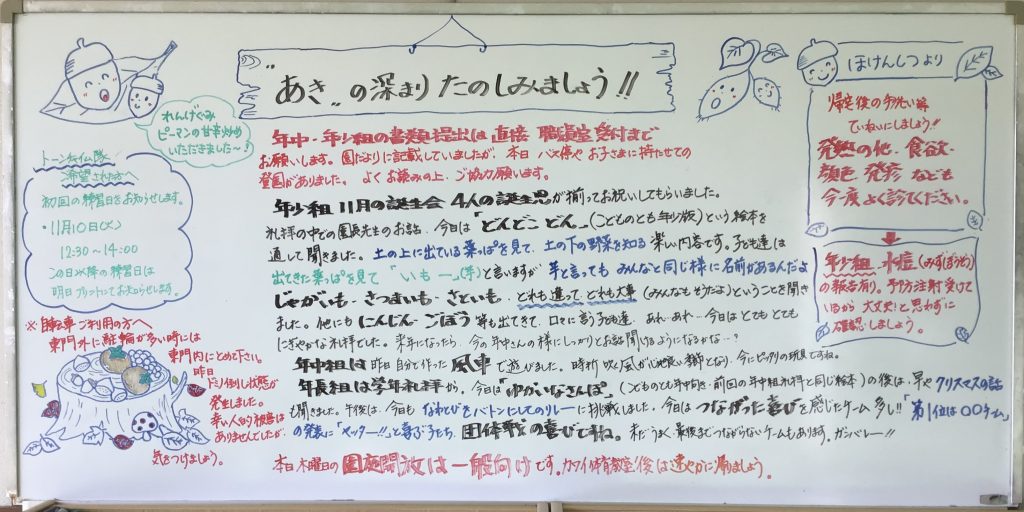 "あき"の深まり たのしみましょう!!
れんげぐみ
ピーマンの甘辛炒め
いただきました～!
トーンチャイム隊
希望された方へ
初回の練習日をお知らせします。
・11月10日(火)
12:30～14:00
この日以降の練習日は
明日プリントにてお知らせします。
※自転車ご利用の方へ
東門外に駐輪が多い時には
東門内にとめて下さい。
昨日
ドミノ倒し状態が
発生しました。
幸い人的被害は
ありませんでしたが、
気をつけましょう。
年中・年少組の書類提出は直接 職員室受付まで
お願いします。園だよりに記載していましたが、本日 バス停や お子さまに持たせての
登園がありました。よくお読みの上、ご協力願います。
年少組 11月の誕生会 4人の誕生児が揃ってお祝いしてもらいました。
礼拝の中での園長先生のお話、今日は「どんどこ どん」(こどものとも年少版)という絵本を
通して聞きました。土の上に出ている葉っぱを見て、土の下の野菜を知る 楽しい内容です。子ども達は
出てきた葉っぱを見て 「いもー」(芋)と言いますが 芋と言っても みんなと同じ様に名前があるんだよ
じゃがいも・さつまいも・さといも・どれも違って どれも大事(みんなもそうだよ)ということを聞き
ました。他にも にんじん・ごぼう 等も出てきて、口々に言う子ども達、あれ・あれ…今日はとてもとても
にぎやかな礼拝でした。来年になったら、今の年中さんの様にしっかりとお話を聞けるようになるかな…?
年中組は 昨日 自分で作った 風車で遊びました。時折 吹く風が心地良い季節となり、今にピッタリの玩具ですね。
年長組は学年礼拝から、今日は「ゆかいなさんぽ」(こどものとも年中向き・前回の年中組礼拝と同じ絵本)の後は、早や クリスマスの話
も聞きました。午後は、今日も なわとびをバトンにしてのリレーに挑戦しました。今日は つながった喜びを感じたチーム多し!!「第1位は〇〇チーム」
の発表に「ヤッター!!」と喜ぶ子たち、団体戦の喜びですね。未だうまく最後までつながらないチームもあります。ガンバレー!!
本日木曜日の園庭開放は一般向けです。カワイ体育教室後は速やかに帰りましょう。
ほけんしつより
帰宅後の手洗い等
ていねいにしましょう!!
発熱の他、食欲・
顔色、発疹 なども
今一度よく診てください。
年少組 水痘(みずぼうそう)
の報告有り。予防注射受けて
いるから 大丈夫!と思わずに
確認しましょう。